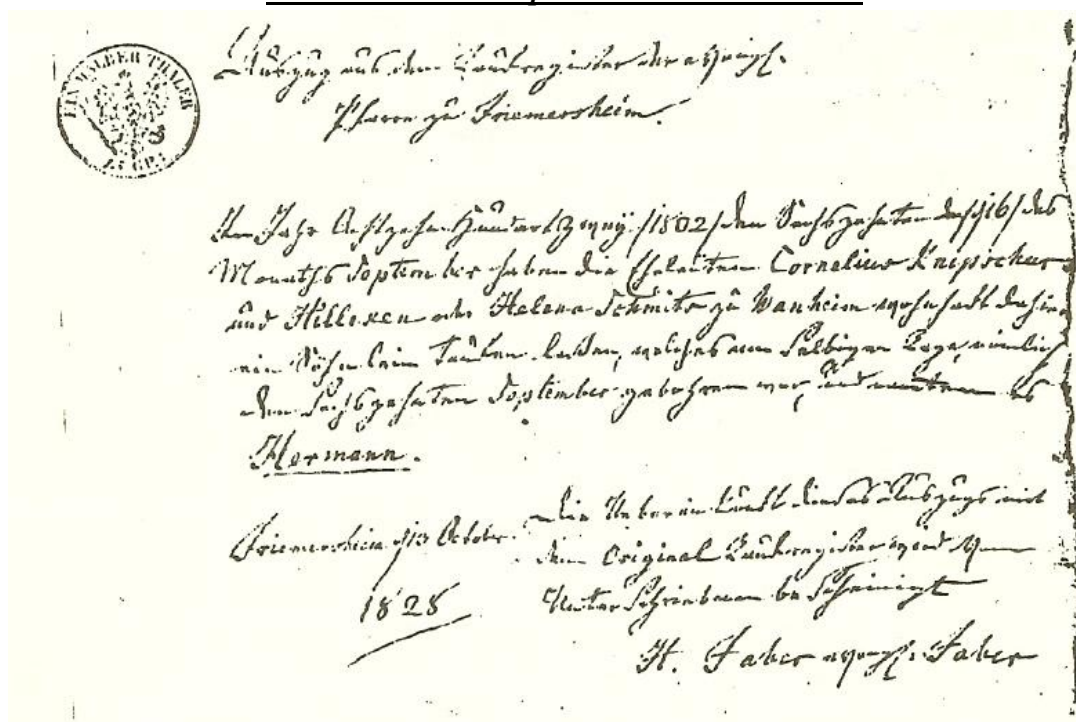 EIN HALBER THALER
15 GR.
Auszug aus dem Taufregister der evangl.
Pfarre zu Friemersheim.
Im Jahr Achtzehn Hundert Zwey /1802/ den Sechszehnten /16/ des
Monaths September haben die Eheleuten Cornelius Knipscher
und Hillexen oder Helena Schmits zu Wanheim wohnhaft
ein Söhnlein taufen lassen, welches am selbigen Tage, nämlich
den Sechszehnten September gebohren war, und nannten es
Hermann.
Friemersheim, 13 October
1828
die Uebereinkunft dieses Auszugs mit
dem Original Taufregister wird vom
Unterschriebenen bescheinigt
H. Faber evangl. Faber